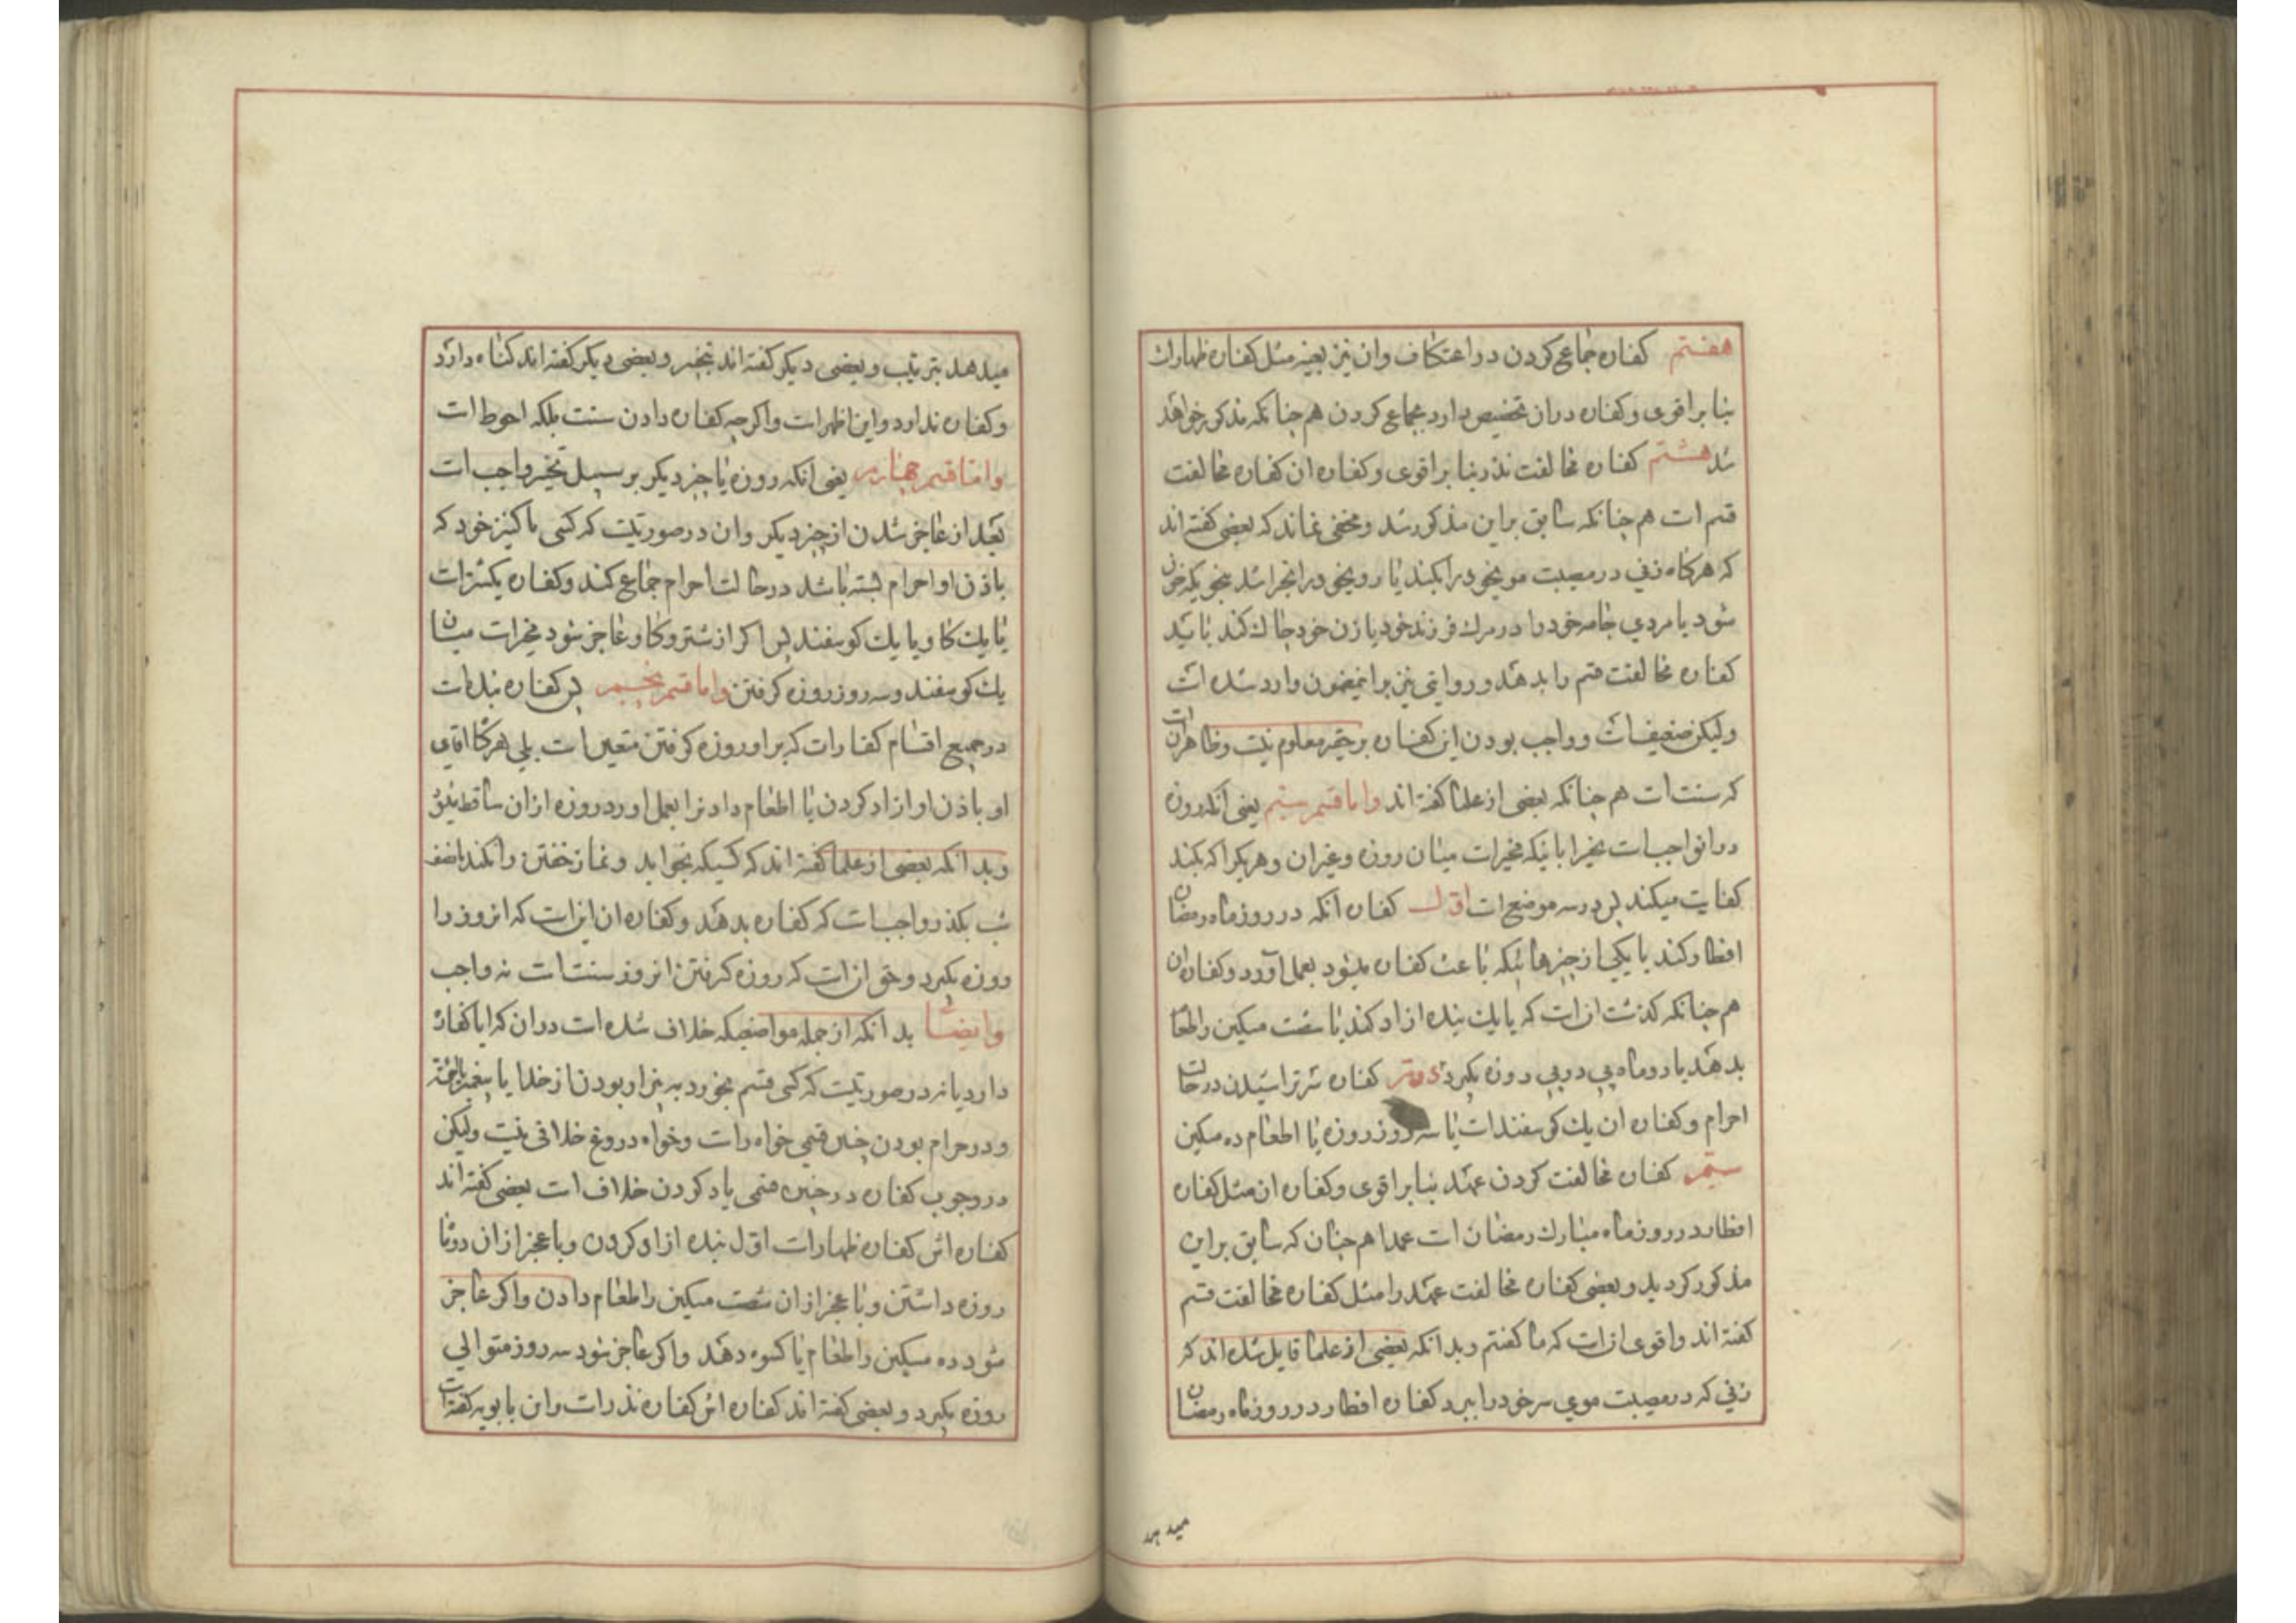 هفتم کفاره جماع کردن در اعتکاف وان نیز بعینه مثل کفاره ظهارات
بنا بر اقوی وکفاره دران تخصیص دارد بجماع کردن هم چنانکه مذکور خواهد
شد هشتم کفاره مخالفت نذر بنا بر اقوی وکفاره ان کفاره مخالفت
قسم ات هم چنانکه سابق براین مذکور شد ومخفی نماند که بعضی کفته اند
که هرکاه زنی در مصیبت مویخود را بکند یا رویخود را بخراشد بنحویکه خون
شود یا مردی جامه خود را در مرك فرزند خود یا زن خود چاك کند باید
کفاره مخالفت قسم را بدهد وروایتی نیز براینمضمون وارد شده ات
ولیکن ضعیفات وواجب بودن این کفاره برحقیر معلوم نیت وظاهر ان ات
که سنت ات هم چنانکه بعضی از علما کفته اند واما قسم سیم یعنی آنکه روزه
دران واجب ات مخیرا باینکه مخیرات میان روزه وغیران وهریکرا که بکند
کفایت میکند پس در سه موضع ات اول کفاره آنکه در روز ماه رمضان
افطار کند با یکی از چیزهائیکه باعث کفاره میشود بعمل آورد وکفاره ان
هم چنانکه کذشت ان ات که یا یك بنده ازاد کند یا شصت مسکین را طعام
بدهد یا دو ماه پی در پی روزه بکیرد دوم کفاره سر تراشیدن در حالت
احرام وکفاره ان یك کوسفند ات یا سه روز روزه یا اطعام ده مسکین
سیم کفاره مخالفت کردن عهد بنا بر اقوی وکفاره ان مثل کفاره
افطار در روز ماه مبارك رمضان ات عمدا هم چنان که سابق براین
مذکور کردید وبعضی کفاره مخالفت عهد را مثل کفاره مخالفت قسم
کفته اند واقوی ان ات که ما کفتم وبدانکه بعضی از علما قایل شده اند که
زنی که در مصیبت موی سر خود را ببرد کفاره افطار در روز ماه رمضان
میدهد
میدهد بترتیب وبعضی دیکر کفته اند بتخییر وبعضی دیکر کفته اند کناه دارد
وکفاره ندارد واین اظهرات واکرچه کفاره دادن سنت بلکه احوط ات
واما قسم چهارم یعنی انکه روزه یا چیز دیکر بر سبیل تخییر واجب ات
بعد از عاجز شدن از چیز دیکر وان در صورتیت که کسی با کنیز خود که
باذن او احرام بسته باشد در حالت احرام جماع کند وکفاره یکشترات
یا یك کاو یا یك کوسفند پس اکر از شتر وکاو عاجز شود مخیرات میان
یك کوسفند وسه روز روزه کرفتن واما قسم پنجم پس کفاره بنده ات
در جمیع اقسام کفارات که بر او روزه کرفتن متعین ات بلی هرکاه اقای
او باذن او ازاد کردن یا اطعام دادنرا بعمل اورد روزه ازان ساقط میشود
وبدانکه بعضی از علما کفته اند که کسیکه بخوابد ونماز خفتن را نکند تا نصف
شب بکذرد واجب ات که کفاره بدهد وکفاره ان این ات که انروز را
روزه بکیرد وحق ان ات که روزه کرفتن انروز سنت ات نه واجب
وایضا بدانکه از جمله مواضعیکه خلاف شده ات دران که ایا کفاره
دارد یا نه در صورتیت که کسی قسم بخورد به بیزار بودن از خدا یا پیغمبر یا ائمه
ودر حرام بودن چنین قسمی خواه رات وخواه دروغ خلافی نیت ولیکن
در وجوب کفاره در چنین قسمی یاد کردن خلاف ات بعضی کفته اند
کفاره اش کفاره ظهارات اول بنده ازاد کردن وبا عجز ازان دو ماه
روزه داشتن وبا عجز ازان شصت مسکین را طعام دادن واکر عاجز
شود ده مسکین را طعام یا کسوه دهد واکر عاجز شود سه روز متوالی
روزه بکیرد وبعضی کفته اند کفاره اش کفاره نذرات وابن بابویه کفته ات